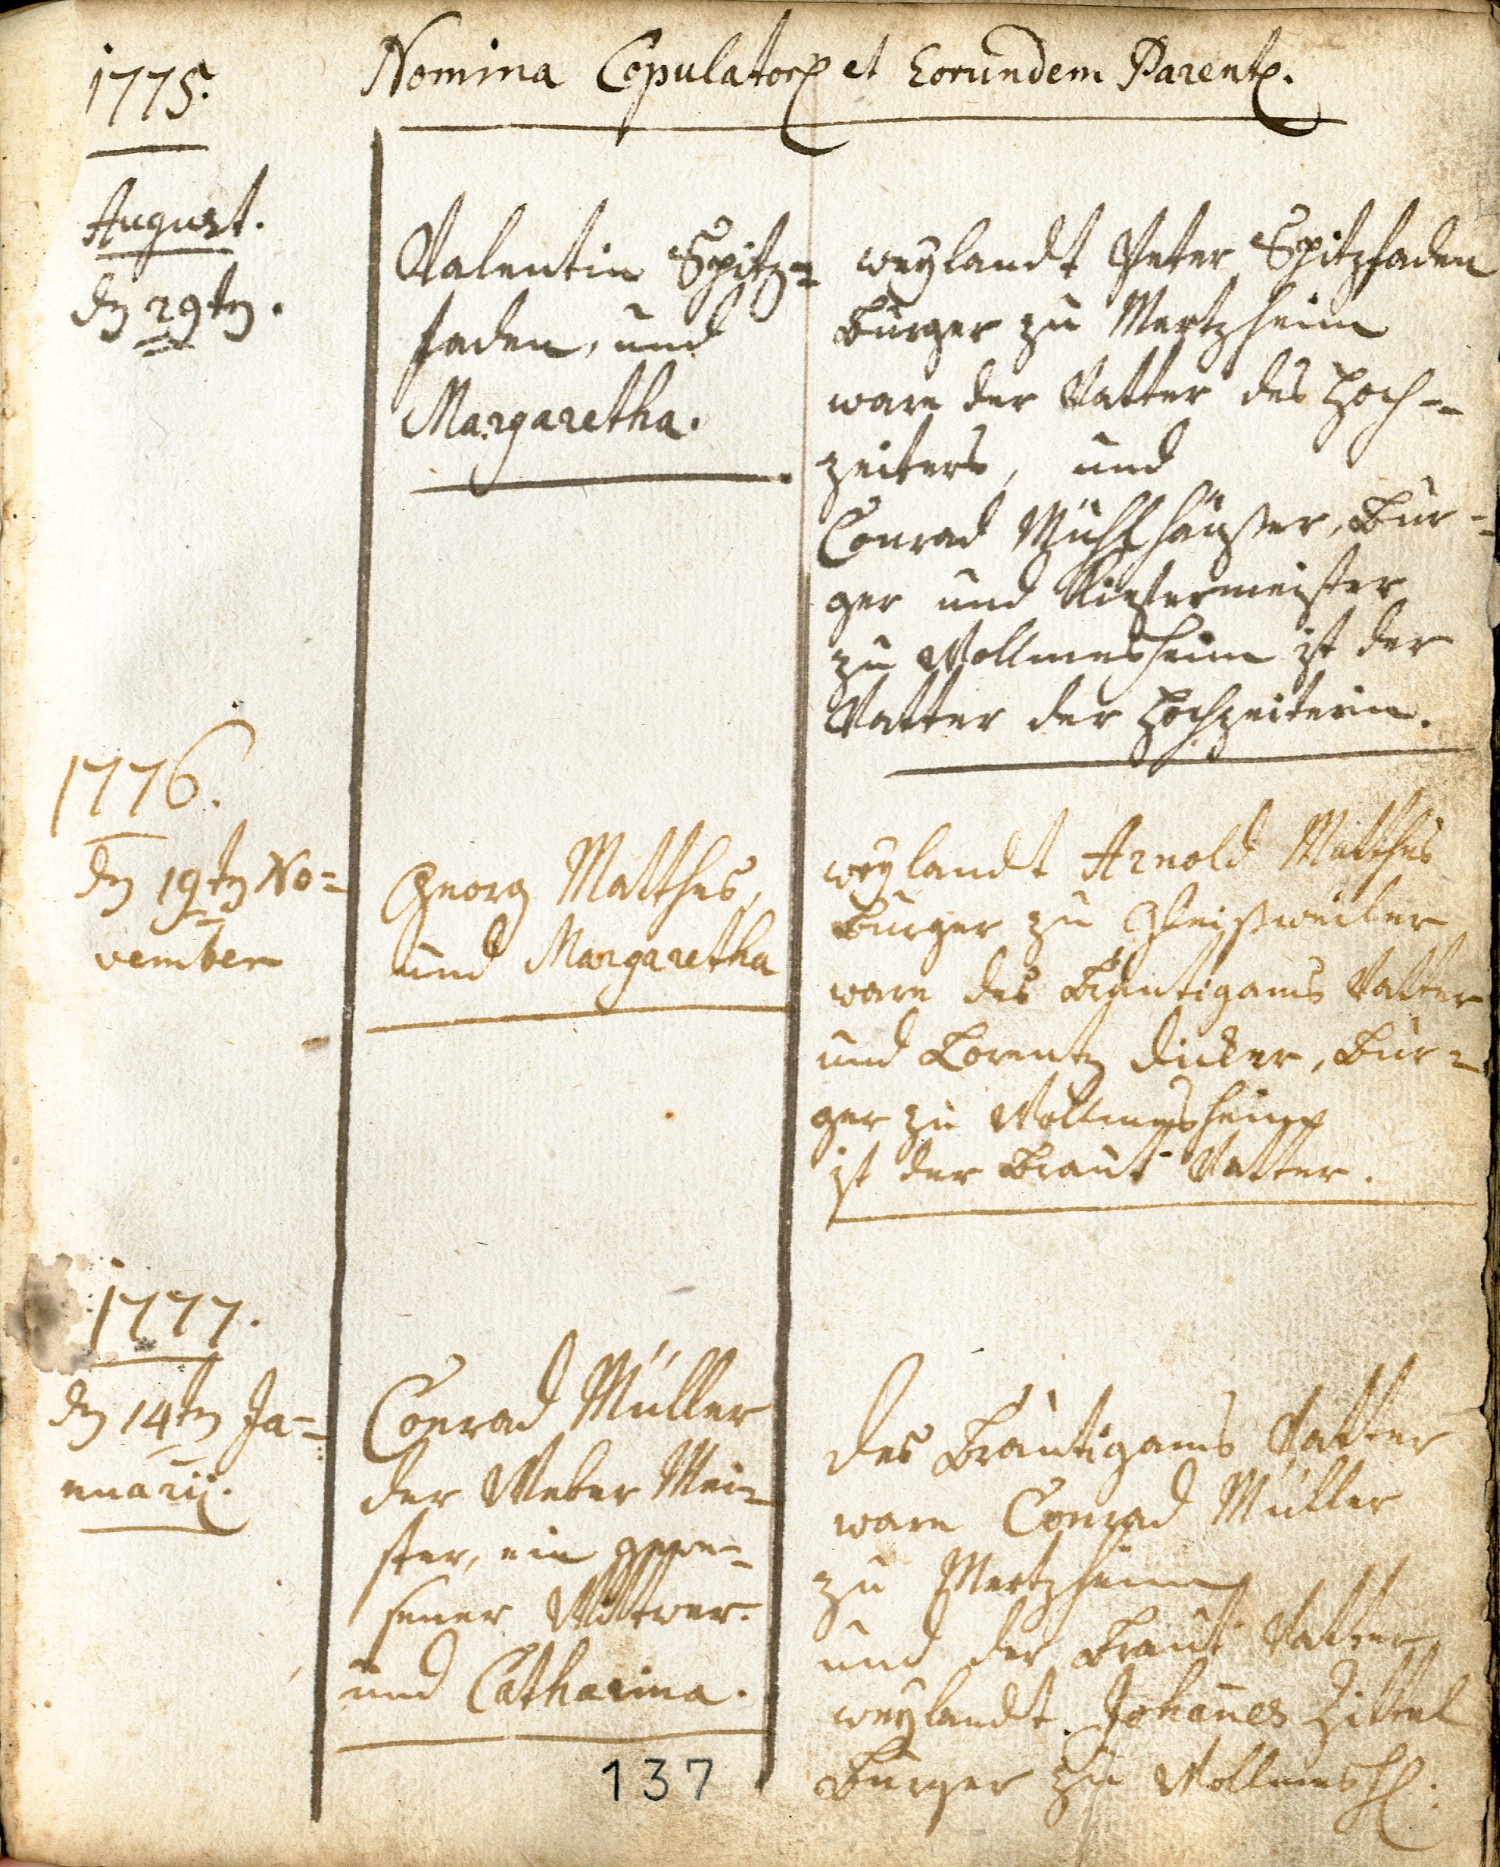 1775.
Nomina Copulator. et Eorundem Parent.
August.
den 29ten.
Valentin Spitz=
faden, und
Margaretha.
weylandt Peter Spitzfaden
Burger zu Mertzheim
ware der Vatter des Hoch=
zeiters, und
Conrad Mühlhäußer, Bur=
ger und Kiefermeister
zu Wollmesheim ist der
Vatter der Hochzeiterin.
1776.
den 19ten No=
vember
Georg Matthes,
und Margaretha
weylandt Arnold Matthes
Burger zu Gleißweiler
ware des Bräutigams Vatter
und Lorentz Dicker, Bur=
ger zu Wollmesheim
ist der Braut Vatter.
1777.
den 14ten Ja=
nuarij.
Conrad Müller
der Weber Mei=
ster, ein gewe=
sener Wittwer.
und Catharina.
des Bräutigams Vatter
ware Conrad Müller
zu Mertzheim
und der Braut Vatter
weylandt Johannes Zittel
Burger zu Wollmesh.
137